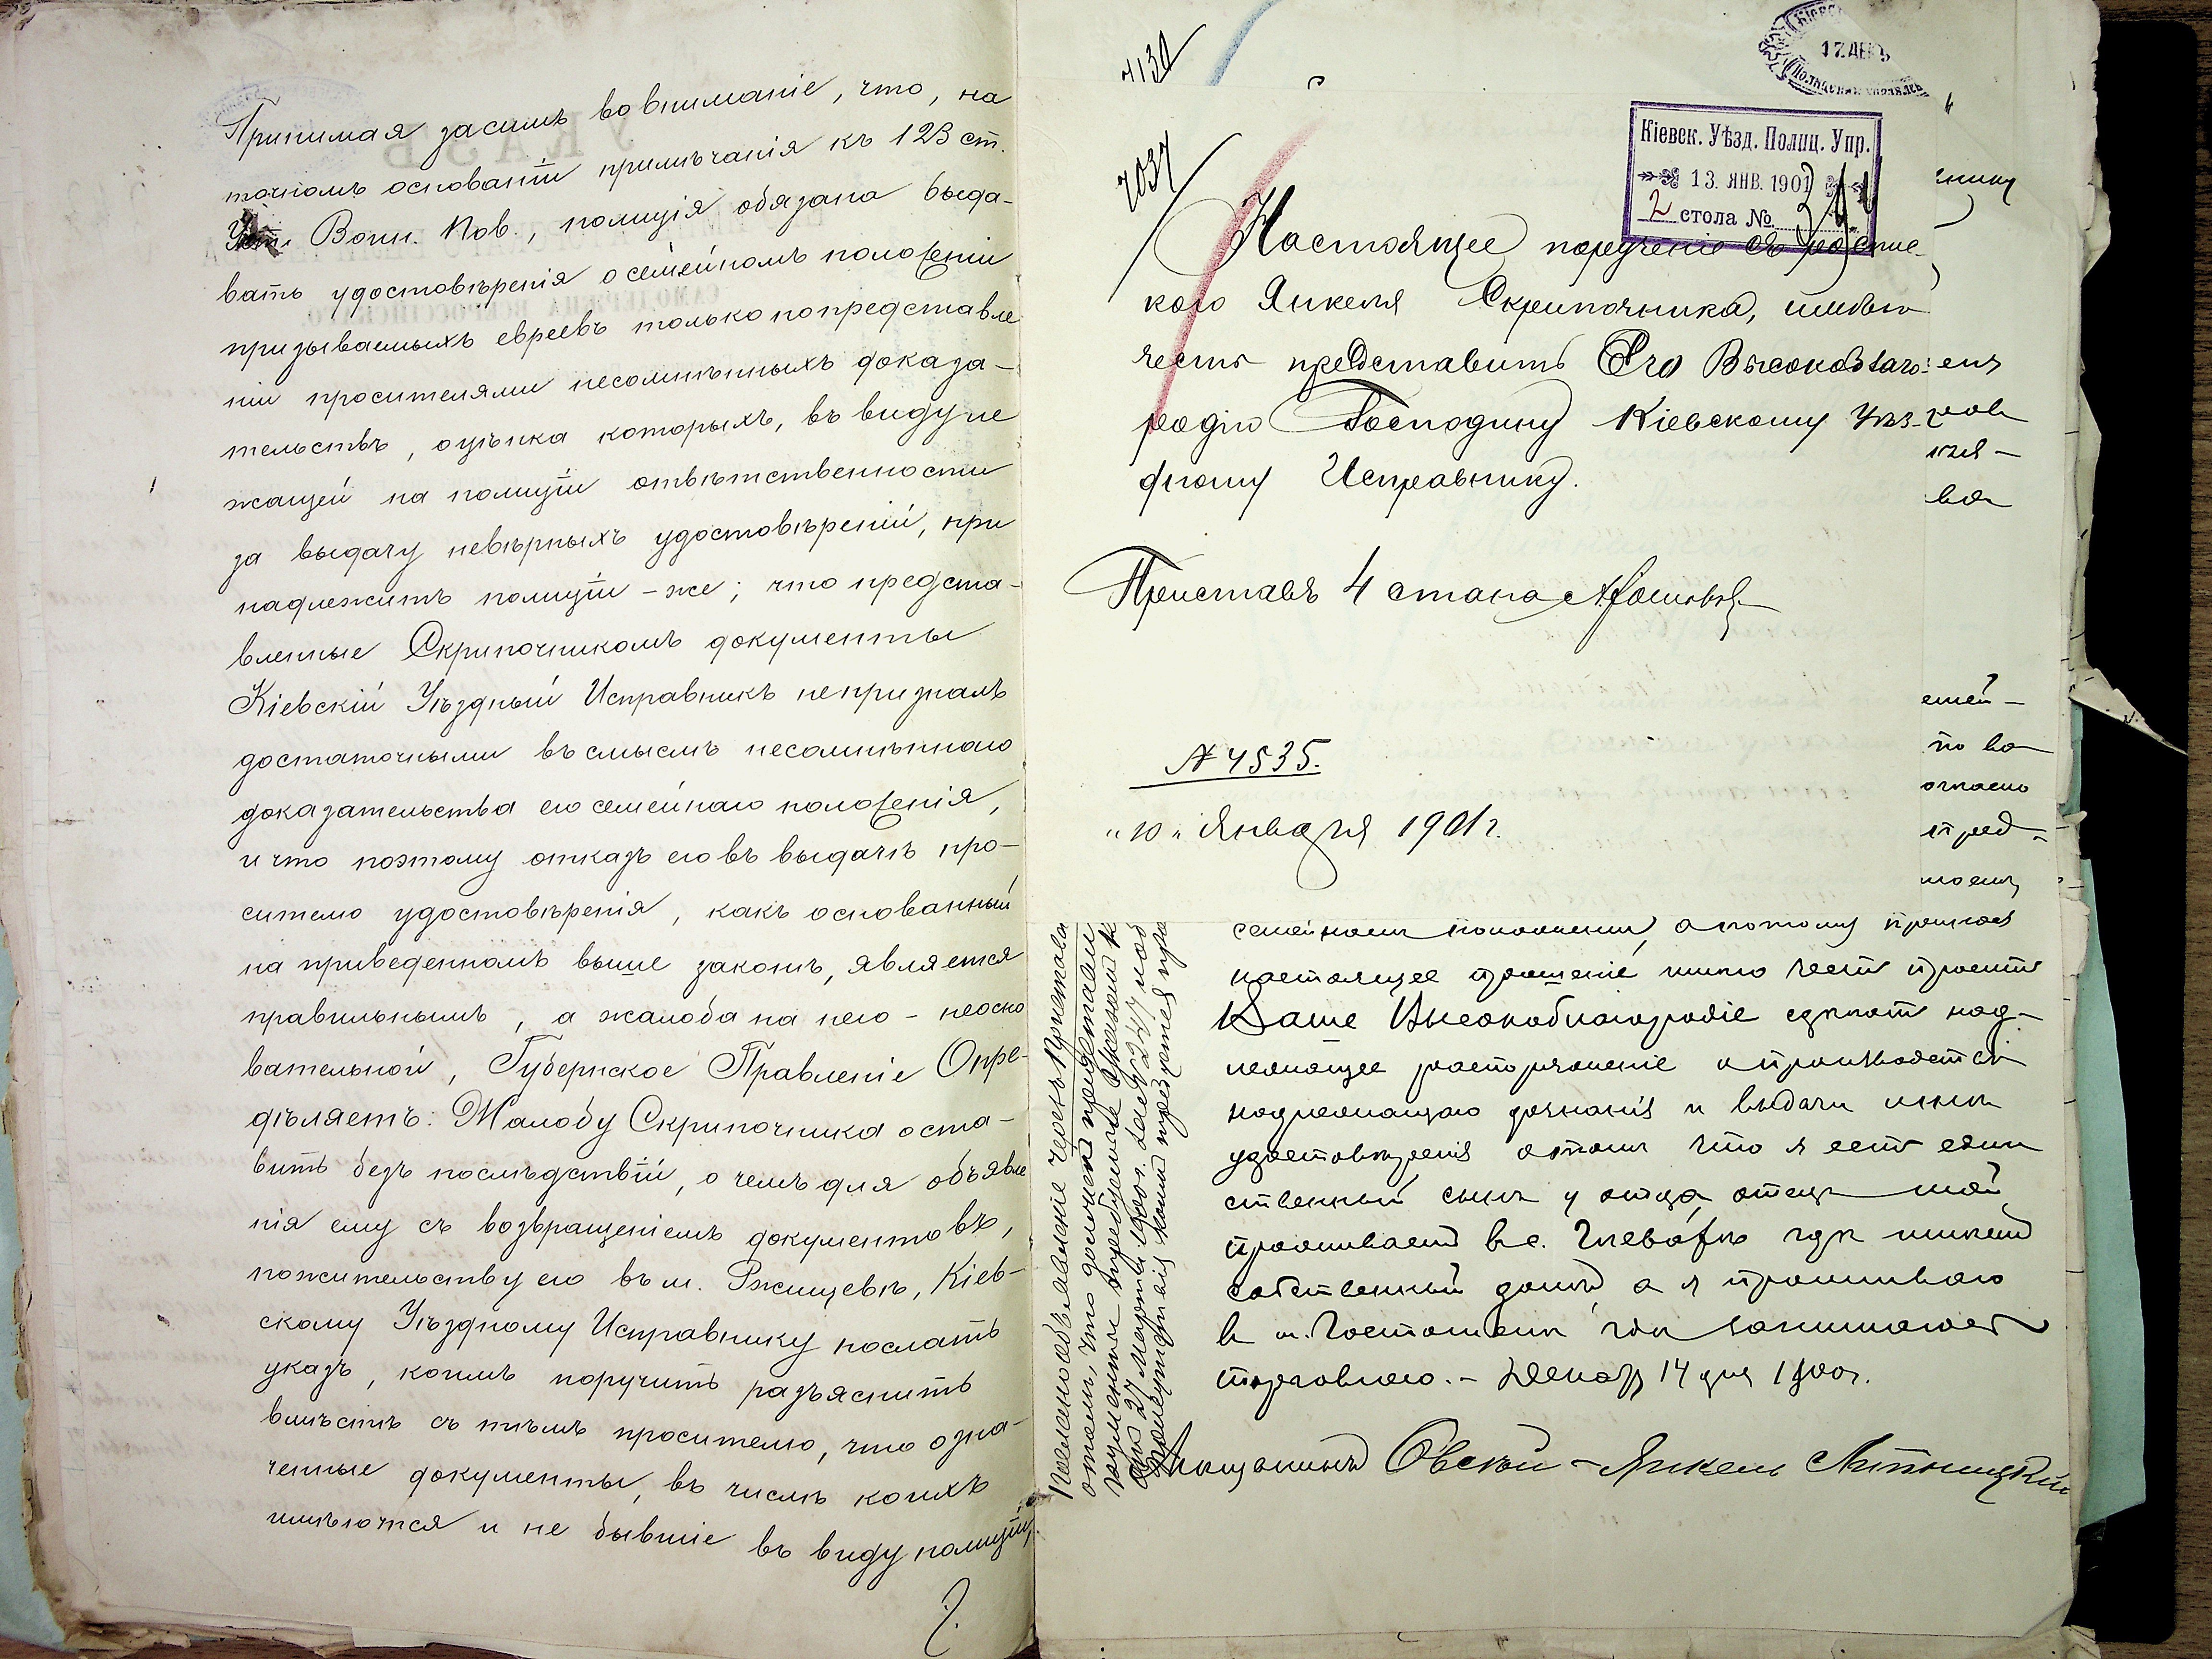 Принимая засимъ во вниманіе, что, на
точномъ основаніи примѣчанія къ 123 ст.
Уст. Воин. Пов., полиція обязана выда-
вать удостовѣренія о семейномъ положеніи
призываемыхъ евреевъ только по представле
ніи просителями несомнѣнныхъ доказа-
тельствъ, оцѣнка которыхъ, въ виду ле
жащей на полиціи отвѣтственности
за выдачу невѣрныхъ удостовѣреній, при
надлежитъ полиціи-же; что предста-
вленные Скрипочникомъ документы
Кіевскій Уѣздный Исправникъ не призналъ
достаточными въ смыслѣ несомнѣннаго
доказательства его семейнаго положенія,
и что поэтому отказъ его въ выдачѣ про-
сителю удостовѣренія, какъ основанный
на приведенномъ выше законѣ, является
правильнымъ, а жалоба на него - неосно
вательной, Губернское Правленіе Опре-
дѣляетъ: Жалобу Скрипочника оста-
вить безъ послѣдствій, о чемъ для объявле
нія ему съ возвращеніемъ документовъ,
по жительству его въ м. Ржищевѣ, Кіев-
скому Уѣздному Исправнику послать
указъ, коимъ поручить разъяснить
вмѣстѣ съ тѣмъ просителю, что озна-
ченные документы, въ числѣ коихъ
имѣются и не бывшіе въ виду полиціи,
4130
7037
17 ДЕК
Кіевск. Уѣзд. Полиц. Упр.
13. ЯНВ. 1901
2 стола №
Настоящее порученіе съ распис-
кою Янкеля Скрипочника, имѣю
честь представить Его Высокоблаго-
родію Господину Кіевскому Уѣз-
дному Исправнику.
Приставъ 4 стана
№ 4535.
"10" Января 1901 г.
семейномъ положеніи, а потому прилагая
настоящее прошеніе имѣю честь просить
Ваше Высокоблагородіе сдѣлать над-
лежащее распоряженіе о производствѣ
надлежащаго дознанія и выдачи мнѣ
удостовѣренія о томъ что я есть един
ственный сынъ у отца, отецъ мой
проживаетъ в с. Глевахѣ гдѣ имѣетъ
собственный домъ, а я проживаю
в м. Гостомелѣ гдѣ занимаюсь
торговлею. - Декабря 14 дня 1900 г.
Мѣщанинъ Овсѣй-Янкель